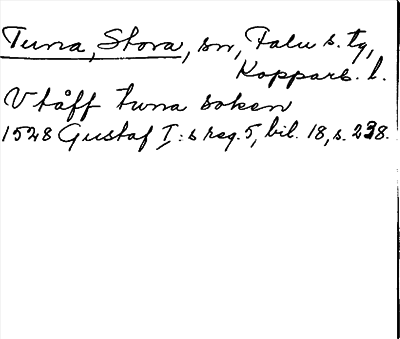 Tuna, Stora, sn, Falu s. tg,
Kopparb. l.
Vtåff tuna soken
1528 Gustaf I:s reg. 5, bil. 18, s. 238.